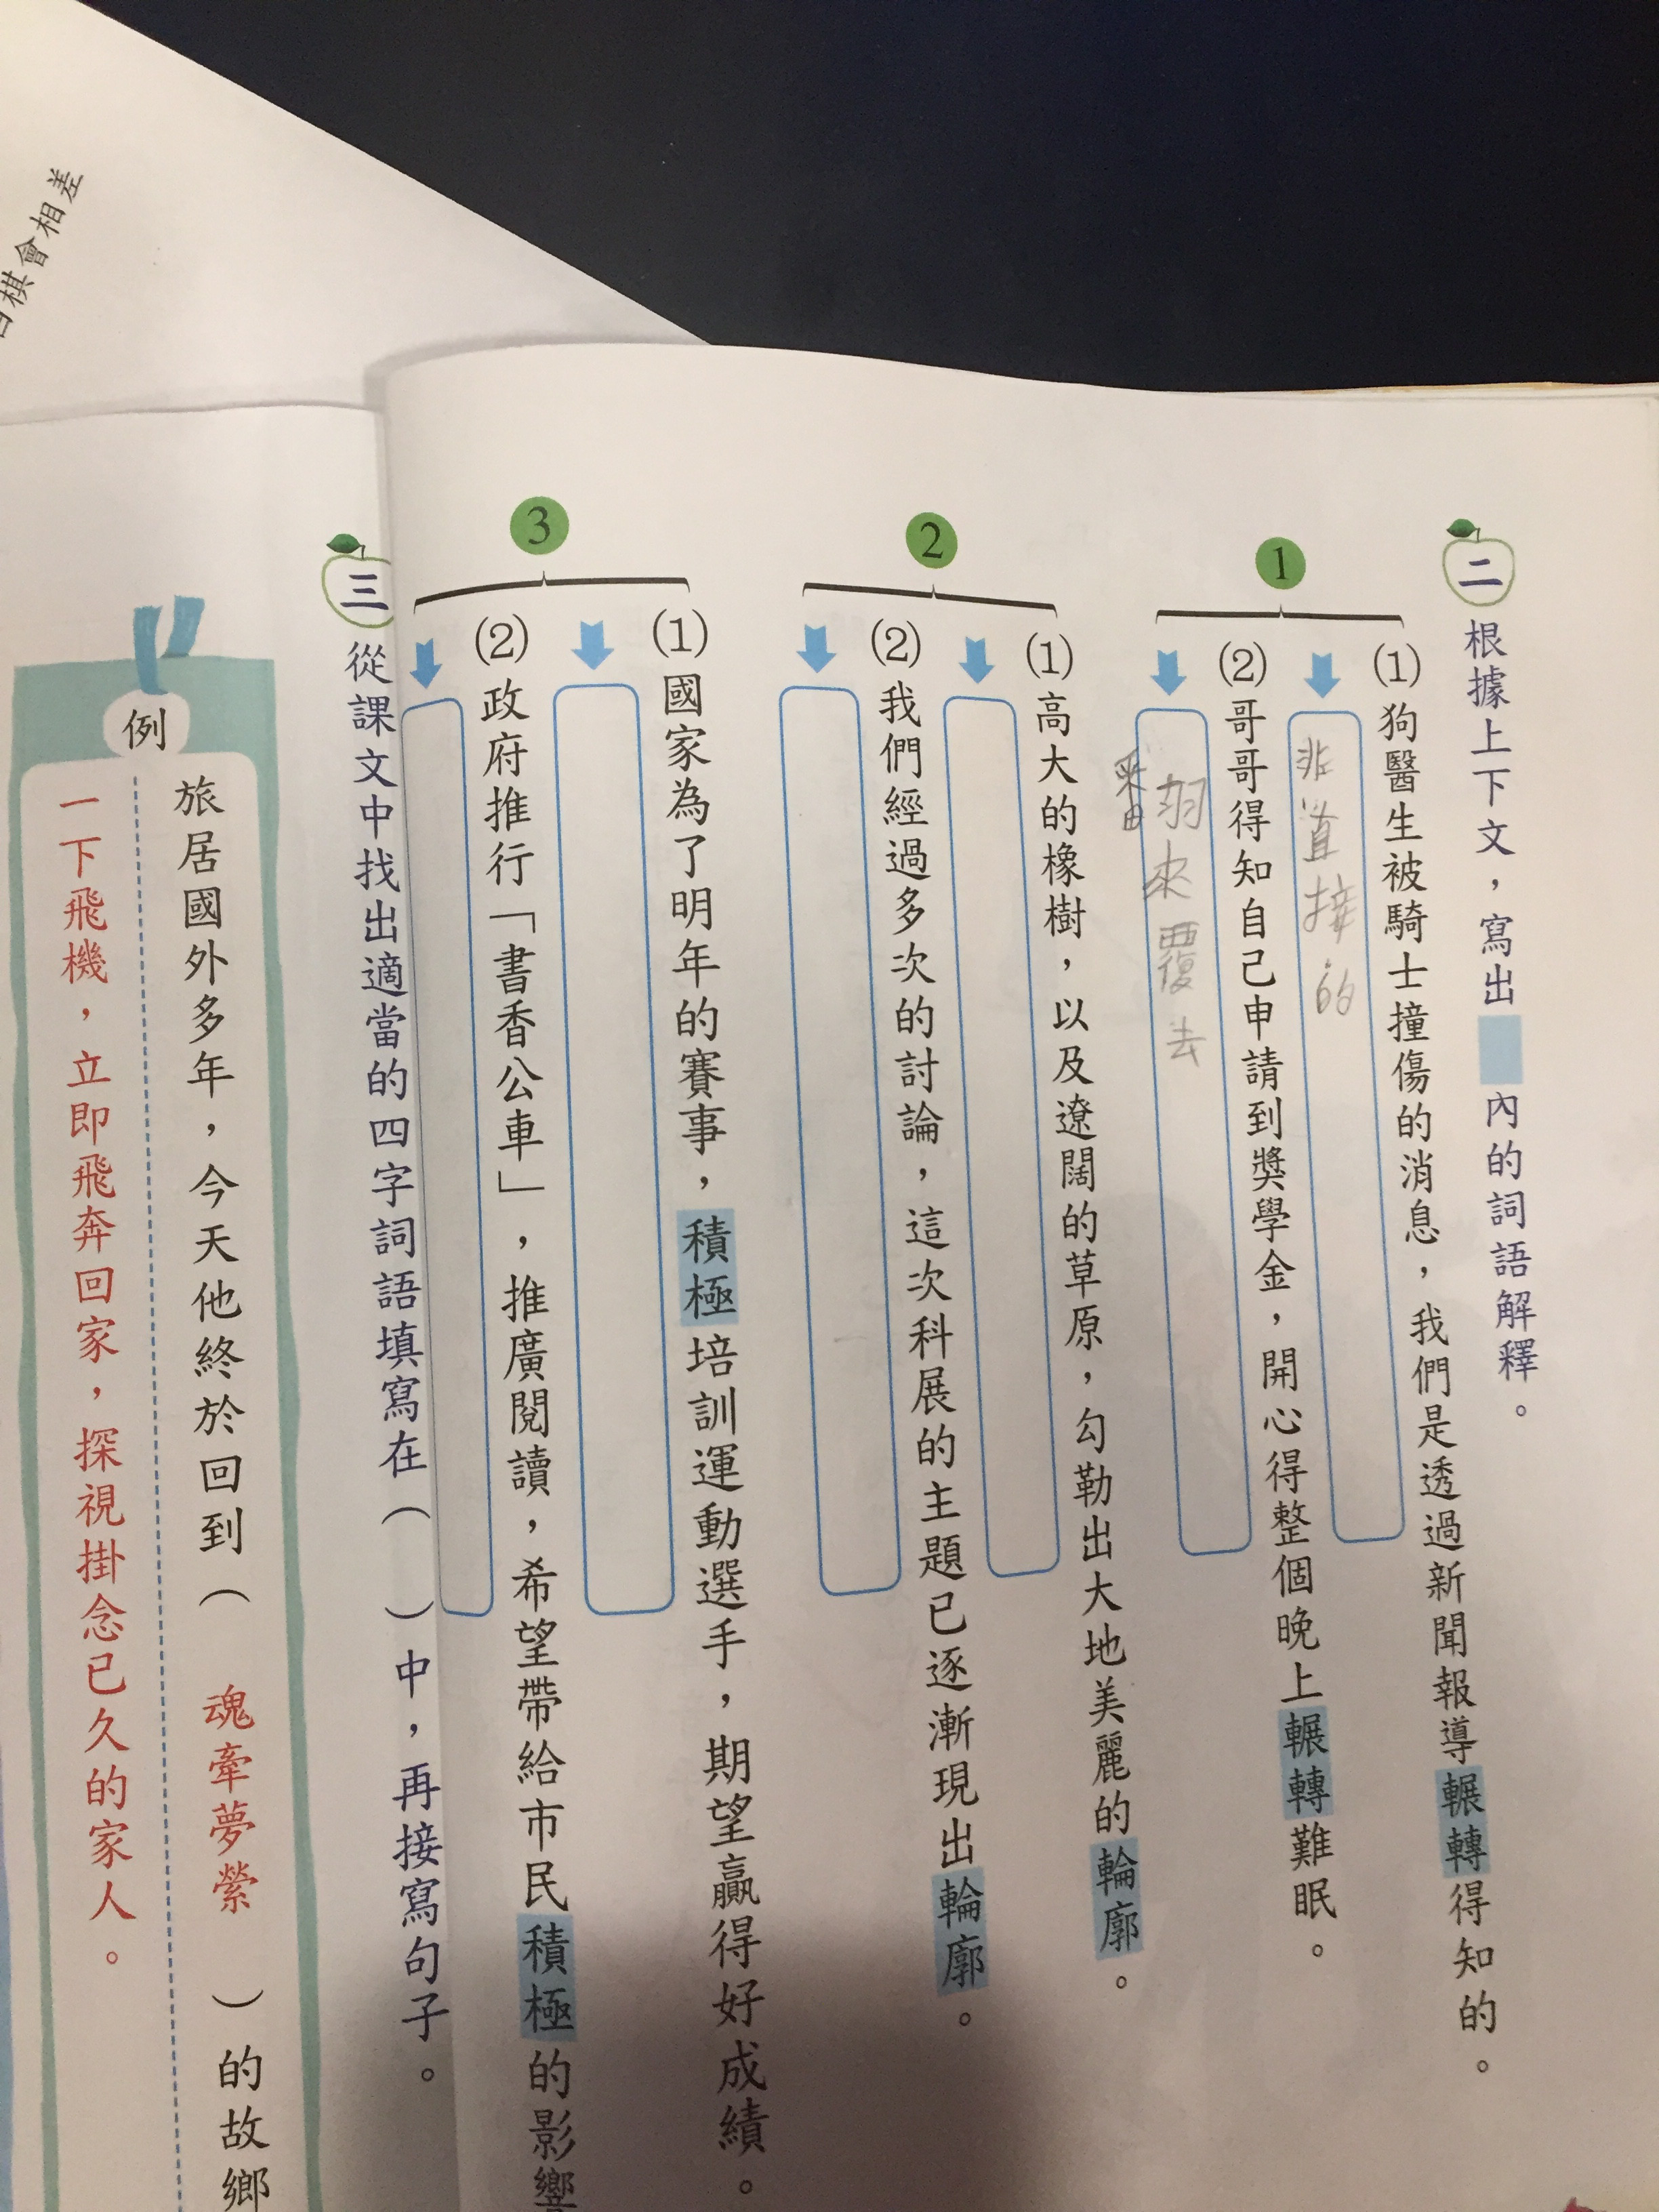 二 根據上下文，寫出 內的詞語解釋。
1
(1)狗醫生被騎士撞傷的消息，我們是透過新聞報導輾轉得知的。
非直接的
(2)哥哥得知自己申請到獎學金，開心得整個晚上輾轉難眠。
翻來覆去
2
(1)高大的橡樹，以及遼闊的草原，勾勒出大地美麗的輪廓。
(2)我們經過多次的討論，這次科展的主題已逐漸現出輪廓。
3
(1)國家為了明年的賽事，積極培訓運動選手，期望贏得好成績。
(2)政府推行「書香公車」，推廣閱讀，希望帶給市民積極的影響
三 從課文中找出適當的四字詞語填寫在（ ）中，再接寫句子。
例
旅居國外多年，今天他終於回到（ 魂牽夢縈 ）的故鄉
一下飛機，立即飛奔回家，探視掛念已久的家人。
棋會相差